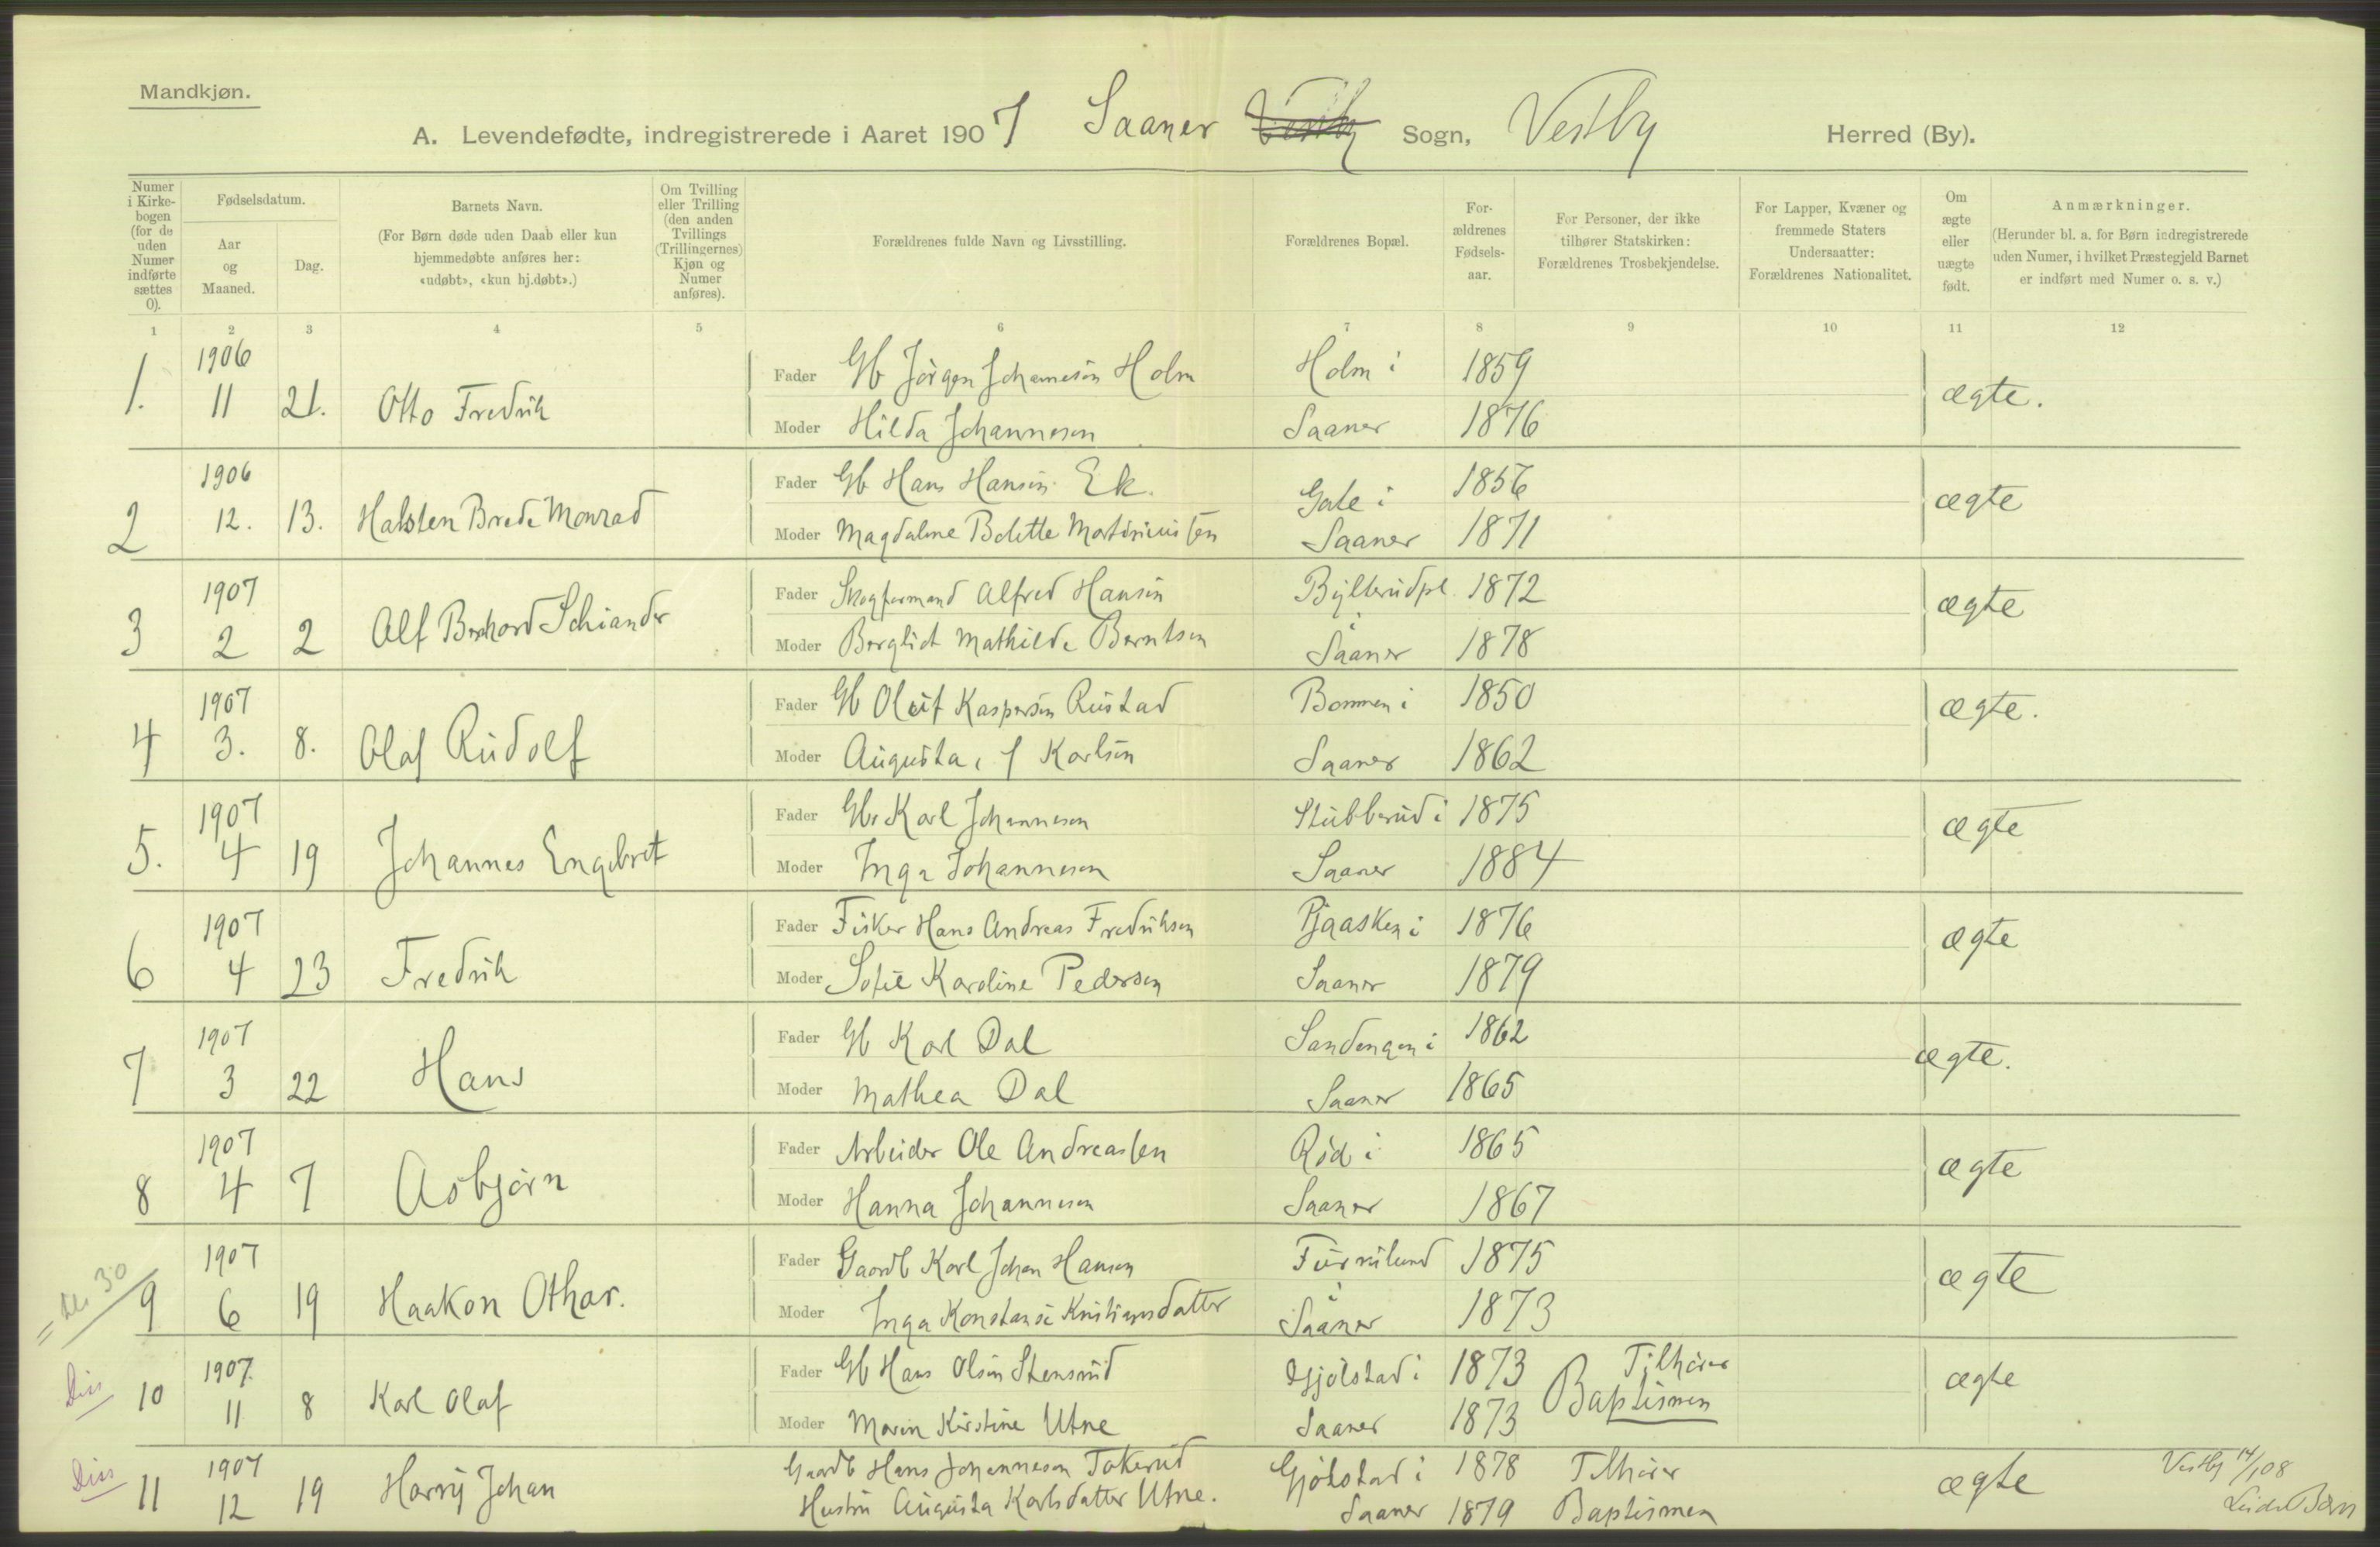 Mandkjøn.
A. Levendefødte, indregistrerede i Aaret 1907 Saaner Vestby Sogn, Vestby Herred (By).
Numer i Kirkebogen (for de uden Numer indførte sættes 0).
Fødselsdatum.
Aar og Maaned.
Dag.
Barnets Navn.
(For Børn døde uden Daab eller kun hjemmedøbte anføres her: «udøbt», «kun hj.døbt».)
Om Tvilling eller Trilling (den anden Tvillings (Trillingernes) Kjøn og Numer anføres).
Forældrenes fulde Navn og Livsstilling.
Forældrenes Bopæl.
Forældrenes Fødselsaar.
For Personer, der ikke tilhører Statskirken: Forældrenes Trosbekjendelse.
For Lapper, Kvæner og fremmede Staters Undersaatter: Forældrenes Nationalitet.
Om ægte eller uægte født.
Anmærkninger.
(Herunder bl. a. for Børn indregistrerede uden Numer, i hvilket Præstegjeld Barnet er indført med Numer o. s. v.)
1 2 3 4 5 6 7 8 9 10 11 12
1906
Fader Gb Jörgen Johannesen Holm Holm i 1859
1. 11 21. Otto Fredrik ægte.
Moder Hilda Johannesen Saaner 1876
1906
Fader Gb Hans Hansen Ek. Gate i 1856
2 12. 13. Halsten Brede Monrad ægte
Moder Magdalene Bolette Martiniussen Saaner 1871
1907
Fader Skogformand Alfred Hansen 1872
3 2 2 Alf Bernhard Schiander ægte
Moder Bergliot Mathilde Berntsen Saaner 1878
1907
Fader Gb Oluf Kaspersen Rustad Bommen i 1850
4 3. 8. Olaf Rudolf ægte.
Moder Augusta, f Karlsen Saaner 1862
1907
Fader Gb Karl Johannesen Stubberud i 1875
5. 4 19 Johannes Engebret ægte
Moder Inga Johannesen Saaner 1884
1907
Fader Fisker Hans Andreas Fredriksen Pjaasken i 1876
6 4 23 Fredrik ægte
Moder Sofie Karoline Pedersen Saaner 1879
1907
Fader Gb Karl Dal Sandengen i 1862
7 3 22 Hans ægte.
Moder Mathea Dal Saaner 1865
1907
Fader Arbeider Ole Andreassen Röd i 1865
8 4 7 Asbjörn ægte
Moder Hanna Johannesen Saaner 1867
1907
Fader Gaardb Karl Johan Hansen Furulund i 1875
9 6 19 Haakon Othar. ægte
Moder Inga Konstanse Kristiansdatter Saaner 1873
1907.
Fader Gb Hans Olsen Stensrud Gjölstad i 1873 Tilhører
Diss 10 11 8 Karl Olaf Baptismen ægte
Moder Maren Kirstine Utne Saaner 1873
1907
Gaardb Hans Johannesen Tokerud Gjölstad i 1878 Tilhører
Diss 11 12 19 Harry Johan ægte
Hustru Augusta Karlsdatter Utne. Saaner 1879 Baptismen
Vestby 14/1 08